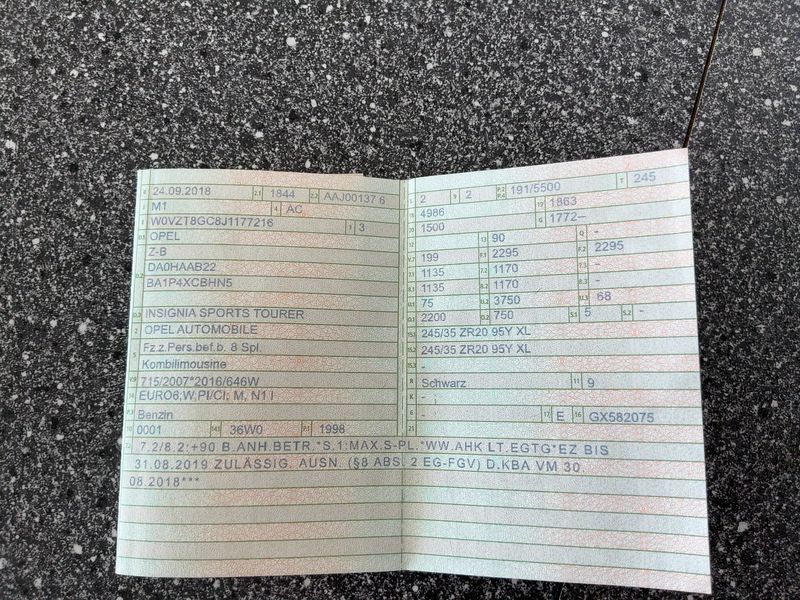 B 24.09.2018 2.1 1844 2.2 AAJ00137 6
J M1 4 AC
E W0VZT8GC8J1177216 3 3
D.1 OPEL
D.2 Z-B
DA0HAAB22
BA1P4XCBHN5
D.3 INSIGNIA SPORTS TOURER
2 OPEL AUTOMOBILE
5 Fz.z.Pers.bef.b. 8 Spl.
Kombilimousine
V.9 715/2007*2016/646W
14 EURO6;W,PI/CI; M, N1 I
P.3 Benzin
10 0001 14.1 36W0 P.1 1998
L 2 9 2 P.2 P.4 191/5500 T 245
18 4986 19 1863
20 1500 G 1772--
12 - 13 90 Q -
V.7 199 F.1 2295 F.2 2295
7.1 1135 7.2 1170 7.3 -
8.1 1135 8.2 1170 8.3 -
U.1 75 U.2 3750 U.3 68
O.1 2200 O.2 750 S.1 5 S.2 -
15.1 245/35 ZR20 95Y XL
15.2 245/35 ZR20 95Y XL
15.3 -
R Schwarz 11 9
K -
6 - 17 E 16 GX582075
21
22 7.2/8.2:+90 B.ANH.BETR.*S.1:MAX.S-PL.*WW.AHK LT.EGTG*EZ BIS
31.08.2019 ZULÄSSIG, AUSN. (§8 ABS. 2 EG-FGV) D.KBA VM 30.
08.2018***